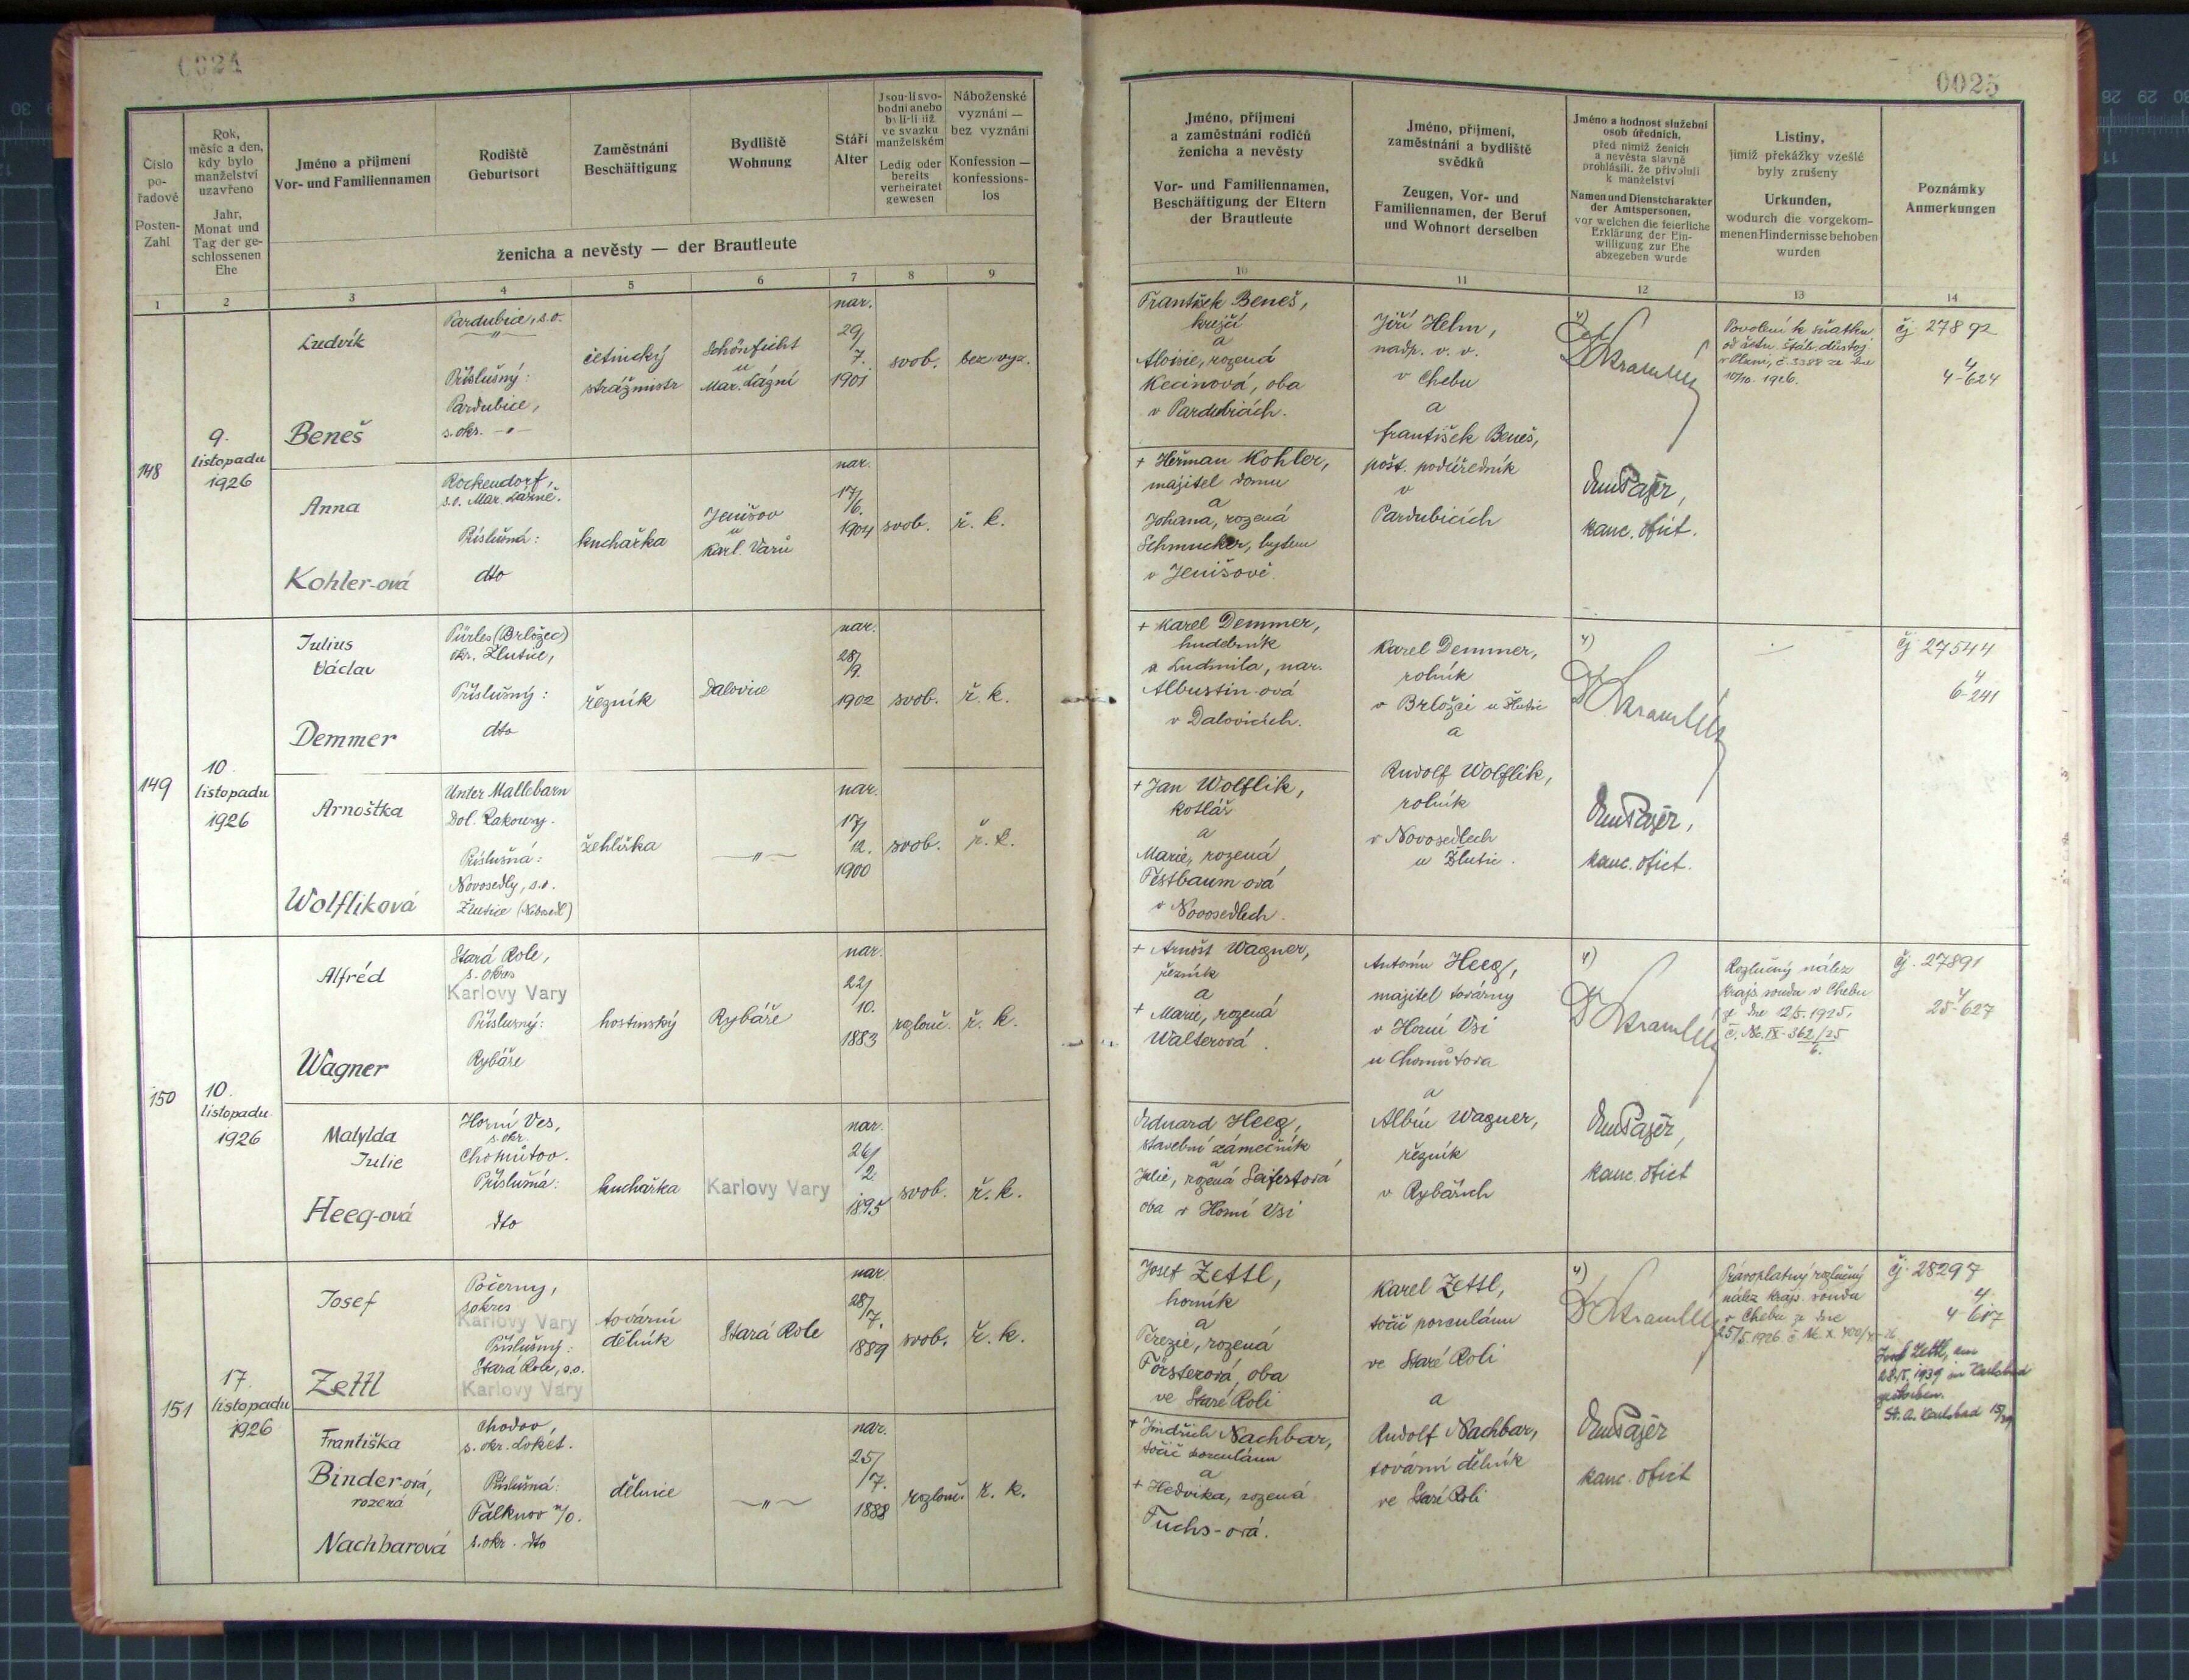 0024
Číslo
po-
řadové
Posten-
Zahl
Rok,
měsíc a den,
kdy bylo
manželství
uzavřeno
Jahr,
Monat und
Tag der ge-
schlossenen
Ehe
Jméno a příjmení
Vor- und Familiennamen
Rodiště
Geburtsort
Zaměstnání
Beschäftigung
Bydliště
Wohnung
Stáří
Alter
Jsou-li svo-
bodni anebo
byli-li již
ve svazku
manželském
Ledig oder
bereits
verheiratet
gewesen
Náboženské
vyznání —
bez vyznání
Konfession —
konfessions-
los
ženicha a nevěsty — der Brautleute
1 2 3 4 5 6 7 8 9
148
9.
listopadu
1926
Ludvík
Beneš
Pardubice, s.o.
—〃—
Příslušný:
Pardubice,
s. okr. —〃—
četnický
strážmistr
Schönficht
u
Mar. Lázní
nar.
29/
7.
1901
svob.
bez vyz.
Anna
Kohler-ová
Rockendorf,
s.o. Mar. Lázně.
Příslušná:
dto
kuchařka
Jenišov
u
Karl. Varů
nar.
17/
6.
1904
svob.
ř. k.
149
10.
listopadu
1926
Julius
Václav
Demmer
Pürles (Brložec)
okr. Žlutice,
Příslušný:
dto
řezník
Dalovice
nar.
28/
9.
1902
svob.
ř. k.
Arnoštka
Wolflíková
Unter Mallebarn
Dol. Rakousy.
Příslušná:
Novosedly, s.o.
Žlutice
žehlířka
—〃—
nar.
17/
12.
1900
svob.
ř. k.
150
10.
listopadu
1926
Alfréd
Wagner
Stará Role,
s. okres
Karlovy Vary
Příslušný:
Rybáře
hostinský
Rybáře
nar.
22/
10.
1883
rozlouč.
ř. k.
Matylda
Julie
Heeg-ová
Horní Ves,
s. okr.
Chomútov.
Příslušná:
dto
kuchařka
Karlovy Vary
nar.
26/
2.
1895
svob.
ř. k.
151
17.
listopadu
1926
Josef
Zettl
Počerny,
s. okres
Karlovy Vary
Příslušný:
Stará Role, s.o.
Karlovy Vary
tovární
dělník
Stará Role
nar
28/
7.
1889
svob.
ř. k.
Františka
Binder-ová,
rozená
Nachbarová
Chodov,
s. okr. Loket.
Příslušná:
Falknov n/O.
s. okr. dto
dělnice
—〃—
nar.
25/
7.
1888
rozlouč.
ř. k.
0025
Jméno, příjmení
a zaměstnání rodičů
ženicha a nevěsty
Vor- und Familiennamen,
Beschäftigung der Eltern
der Brautleute
Jméno, příjmení,
zaměstnání a bydliště
svědků
Zeugen, Vor- und
Familiennamen, der Beruf
und Wohnort derselben
Jméno a hodnost služební
osob úředních,
před nimiž ženich
a nevěsta slavně
prohlásili, že přivolili
k manželství
Namen und Dienstcharakter
der Amtspersonen,
vor welchen die feierliche
Erklärung der Ein-
willigung zur Ehe
abgegeben wurde
Listiny,
jimiž překážky vzešlé
byly zrušeny
Urkunden,
wodurch die vorgekom-
menen Hindernisse behoben
wurden
Poznámky
Anmerkungen
10 11 12 13 14
František Beneš,
krejčí
a
Aloisie, rozená
Kecinová, oba
v Pardubicích.
+ Heřman Kohler,
majitel domu
a
Johana, rozená
Schmucker, bytem
v Jenišově.
Jiří Helm,
nadp. v. v.
v Chebu
a
František Beneš,
pošt. podúředník
v
Pardubicích
kanc. ofict.
Povolení k sňatku
od četn. štáb. důstoj.
v Plzni, č. 3388 ze dne
10/10. 1926.
čj. 27892
4
4-624
+ Karel Demmer,
hudebník
a Ludmila, nar.
Albustin-ová
v Dalovicích.
+ Jan Wolflik,
kotlář
a
Marie, rozená
Pestbaum-ová
v Novosedlech.
Karel Demmer,
rolník
v Brložci u Žlutic
a
Rudolf Wolflik,
rolník
v Novosedlech
u Žlutic.
kanc. ofict.
čj 27544
4
6-241
+ Arnošt Wagner,
řezník
a
+ Marie, rozená
Walterová.
Eduard Heeg,
stavební zámečník
a
Julie, rozená Saifertová
oba v Horní Vsi
Antonín Heeg,
majitel továrny
v Horní Vsi
u Chomútova
a
Albín Wagner,
řezník
v Rybářích
kanc. ofict
Rozlučný nález
krajs. soudu v Chebu
ze dne 12/5. 1925,
č. Nc. IX-362/25
6.
čj. 27891
4
25-627
Josef Zettl,
horník
a
Terezie, rozená
Försterová, oba
ve Staré Roli
+ Jindřich Nachbar,
točič porculánu
a
+ Hedvika, rozená
Fuchs-ová.
Karel Zettl,
točič porculánu
ve Staré Roli
a
Rudolf Nachbar,
tovární dělník
ve Staré Roli
kanc. ofict
Právoplatný rozlučný
nález krajs. soudu
v Chebu ze dne
25/5. 1926
čj. 28297
4
4-617
Josef Zettl, am
28./5. 1939 in Karlsbad
gestorben.
St. A. Karlsbad